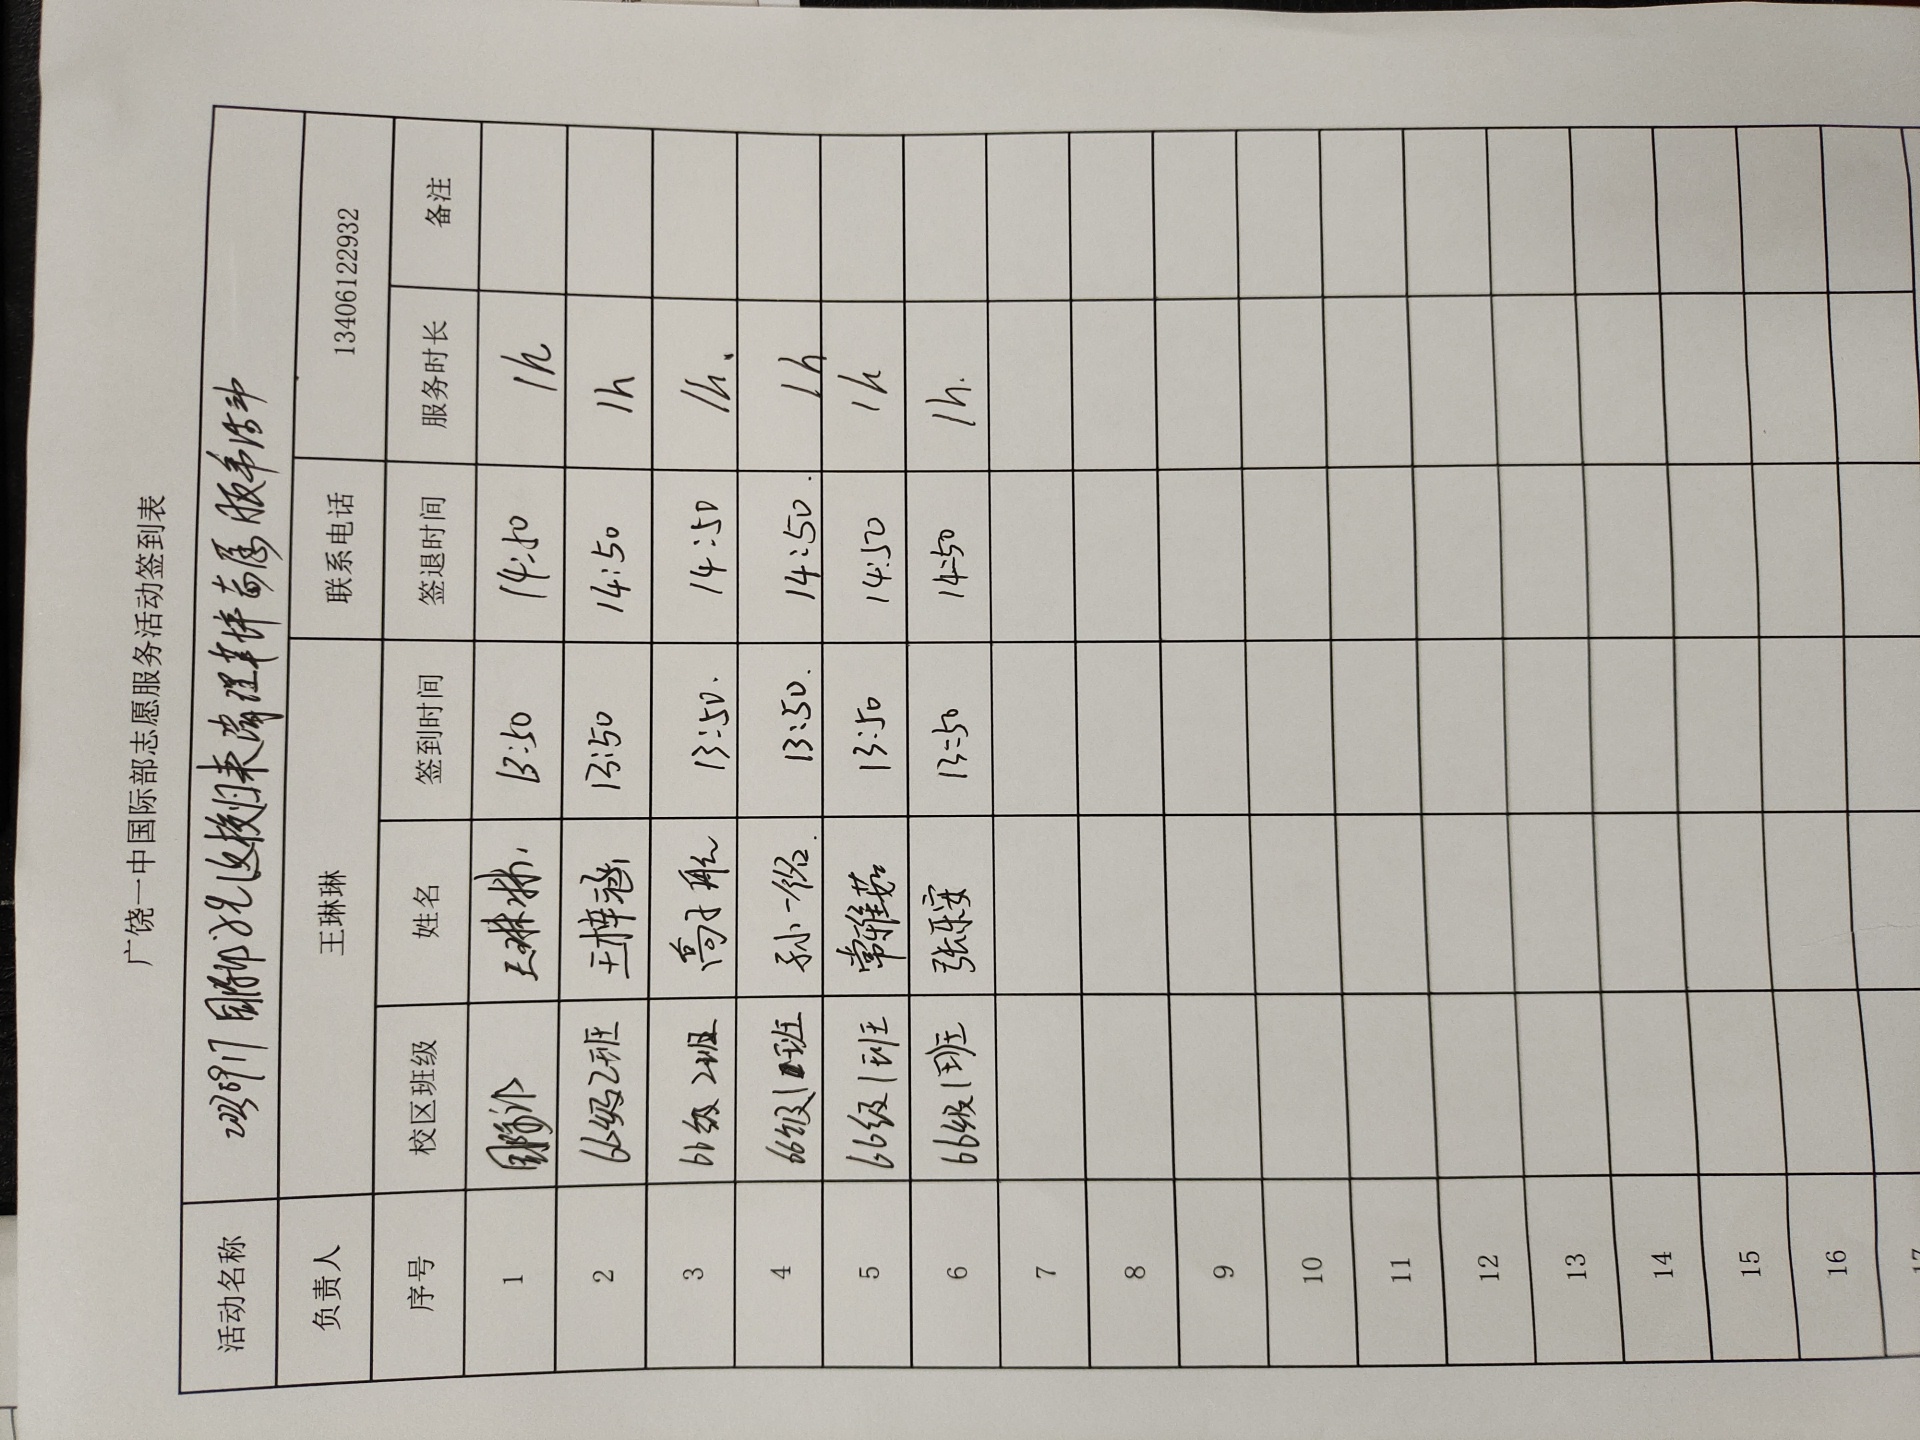 广饶一中国际部志愿服务活动签到表
活动名称 国际部 返校归来 活动
负责人 王琳琳 联系电话 13406122932
序号 校区班级 姓名 签到时间 签退时间 服务时长 备注
1 国际部 王琳琳 13:50 14:50 1h
2 66级2班 王梓涵 13:50 14:50 1h
3 66级2班 高子 13:50. 14:50 1h.
4 66级1班 孙一 13:50. 14:50. 1h
5 66级1班 常雅茹 13:50 14:50 1h
6 66级1班 张乐安 13:50 14:50 1h.
7
8
9
10
11
12
13
14
15
16
17